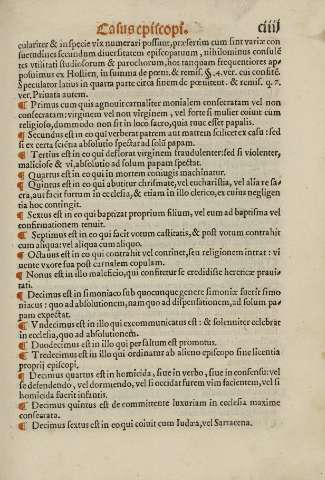 Casus episcopi. ciiij
culariter & in specie vix numerari possint, præsertim cum sint variæ con
suetudines secundum diuersitatem episcopatuum, nihilominus consulẽ
tes vtilitati studiosorum & parochorum, hos tanquam frequentiores ap
posuimus ex Hostien. in summa de pœni. & remis. §. 4. ver. cui confitẽ.
Speculator latius in quarta parte circa finem de pœnitent. & remis. q. 7.
ver. Priuata autem.
¶ Primus cum quis agnouit carnaliter monialem consecratam vel non
consecratam: virginem vel non virginem, vel forte si mulier coiuit cum
religioso, dummodo non sit in loco sacro, quia tunc esset papalis.
¶ Secundus est in eo qui verberat patrem aut matrem scilicet ex casu: sed
si ex certa sciẽtia absolutio spectat ad solũ papam.
¶ Tertius est in eo qui deflorat virginem fraudulenter: sed si violenter,
maliciose & vi, absolutio ad solum papam spectat.
¶ Quartus est in eo qui in mortem coniugis machinatur.
¶ Quintus est in eo qui abutitur chrismate, vel eucharistia, vel alia re sa-
cra, aut facit furtum in ecclesia, & etiam in illo clerico, ex cuius negligen
tia hoc contingit.
¶ Sextus est in eo qui baptizat proprium filium, vel eum ad baptisma vel
confirmationem tenuit.
¶ Septimus est in eo qui facit votum castitatis, & post votum contrahit
cum aliqua: vel aliqua cum aliquo.
¶ Octauus est in eo qui contrahit vel continet, seu religionem intrat: vi
uente vxore sua post carnalem copulam.
¶ Nonus est in illo maleficio, qui confitetur se credidisse hereticæ praui-
tati.
¶ Decimus est in simoniaco sub quocunque genere simoniæ fuerit simo
niacus: quo ad absolutionem, nam quo ad dispensationem, ad solum pa-
pam expectat.
¶ Vndecimus est in illo qui excommunicatus est: & solenniter celebrat
in ecclesia, quo ad absolutionem.
¶ Duodecimus est in illo qui per saltum est promotus.
¶ Tredecimus est in illo qui ordinatur ab alieno episcopo sine licentia
proprij episcopi.
¶ Decimus quartus est in homicida, siue in verbo, siue in consensu: vel
se defendendo, vel dormiendo, vel si occidat furem vim facientem, vel si
homicida fuerit infantis.
¶ Decimus quintus est de committente luxuriam in ecclesia maxime
consecrata.
¶ Decimus sextus est in eo qui coiuit cum Iudæa, vel Sarracena.